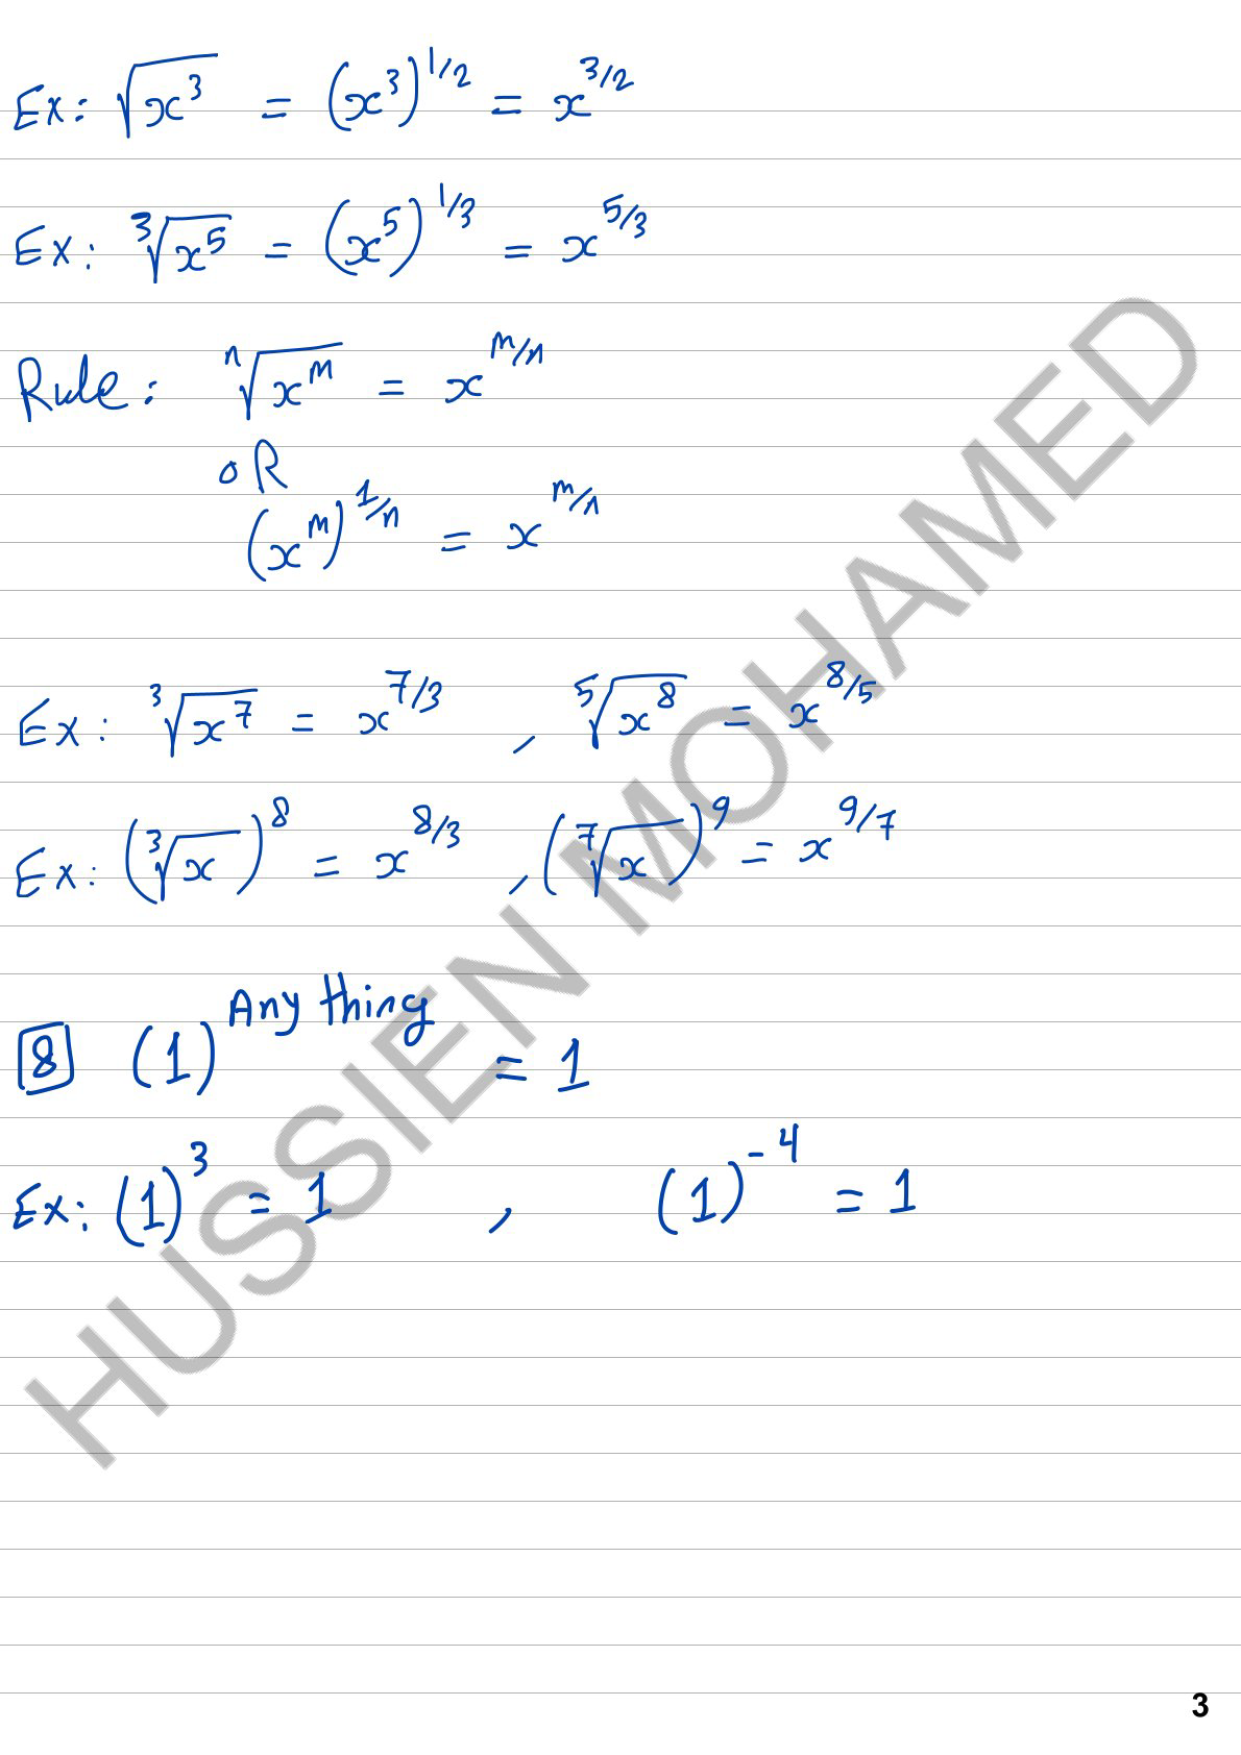 Ex: √x³ = (x³)^1/2 = x^3/2
Ex: ³√x⁵ = (x⁵)^1/3 = x^5/3
Rule: ⁿ√x^m = x^m/n
OR
(x^m)^1/n = x^m/n
Ex: ³√x⁷ = x^7/3 , ⁵√x⁸ = x^8/5
Ex: (³√x)⁸ = x^8/3 , (⁷√x)⁹ = x^9/7
8 (1)^Any thing = 1
Ex: (1)³ = 1 , (1)⁻⁴ = 1
HUSSIEN MOHAMED
3